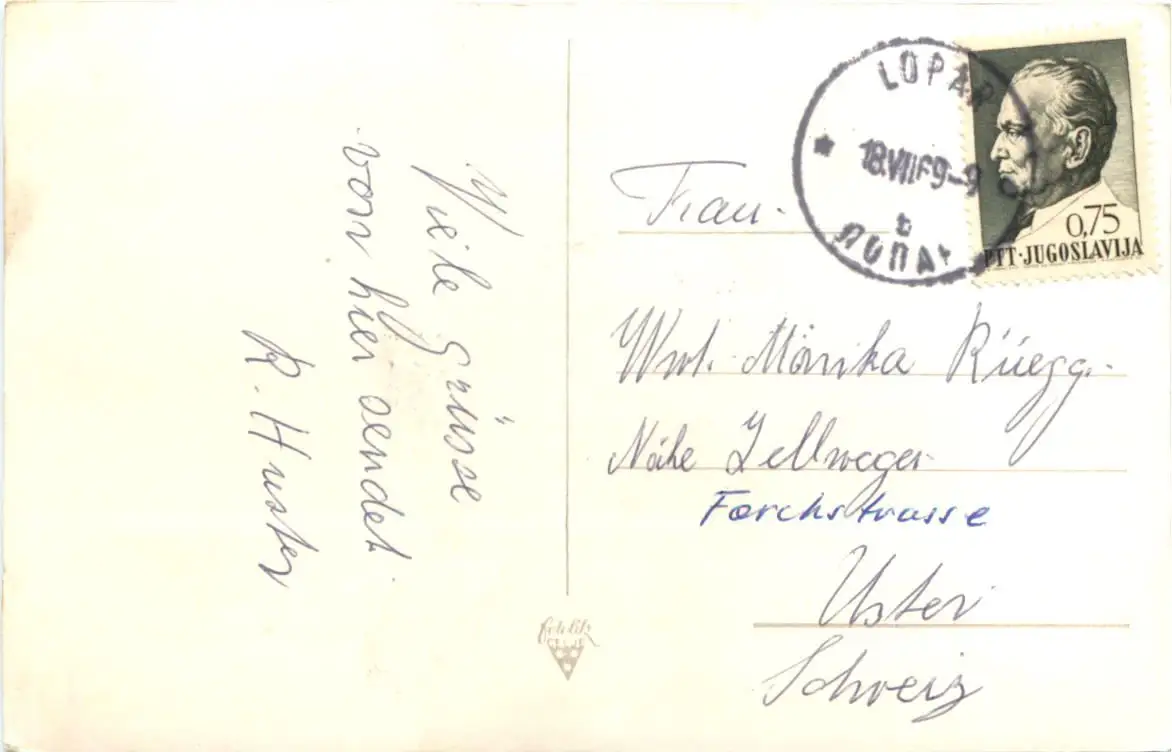 Viele Grüsse
von hier sendet
R. Huster
LOPAR
18.VIII 69-9
b
ЛОПАР
0,75
PTT·JUGOSLAVIJA
Frau.
Wwt. Monika Rüegg.
Nähe Zellweger
Forchstrasse
Uster
Schweiz
CELJE